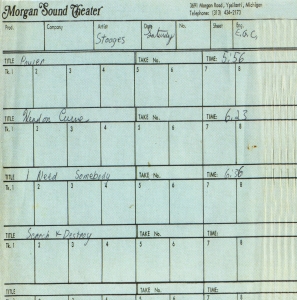 Morgan Sound Theater
3691 Morgan Road, Ypsilanti, Michigan
Telephone: (313) 434-2272
Prod. Company Artist Date No. Sheet Eng.
Stooges Saturday E.G.C.
TITLE Power TAKE No. TIME: 5:56
Tk. 1 2 3 4 5 6 7 8
TITLE TAKE No. TIME: 6:23
Tk. 1 2 3 4 5 6 7 8
TITLE I Need Somebody TAKE No. TIME: 6:36
Tk. 1 2 3 4 5 6 7 8
TITLE Search & Destroy TAKE No. TIME:
Tk. 1 2 3 4 5 6 7 8
TITLE TAKE No. TIME:
Tk. 1 2 3 4 5 6 7 8